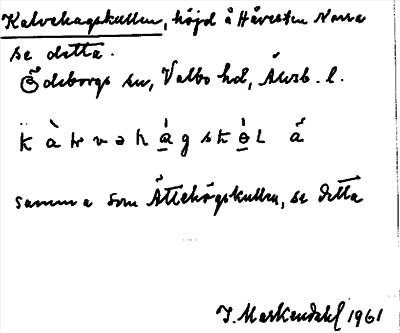 Kalvehagskullen, höjd å Håvesten Norra
se detta.
Ödeborgs sn, Valbo hd, Älvsb. l.
k à l v ə h á g s k ө̀ l ä̀
samma som Ättehögskullen, se detta
J. Markendahl 1961